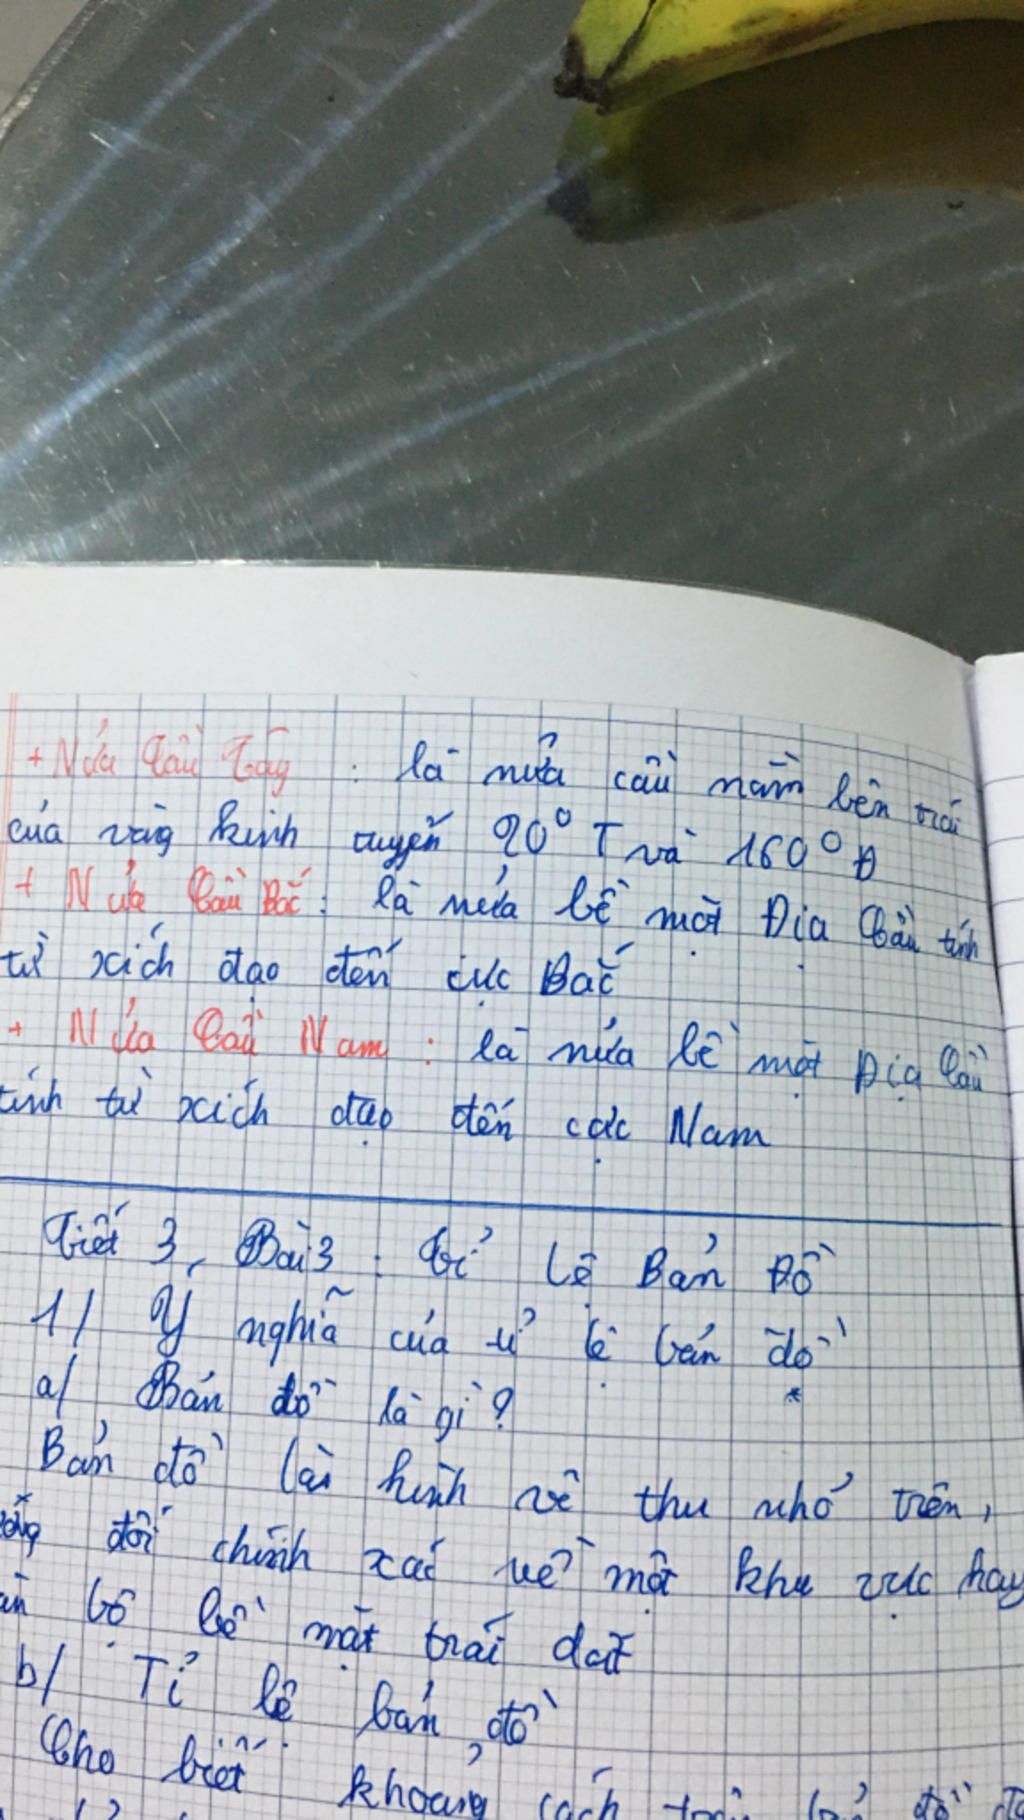 + Nửa Cầu Tây : là nửa cầu nằm bên trái
của vòng kinh tuyến 20° T và 160° Đ
+ Nửa Cầu Bắc : là nửa bề mặt Địa Cầu tính
từ xích đạo đến cực Bắc
+ Nửa Cầu Nam : là nửa bề mặt Địa Cầu
tính từ xích đạo đến cực Nam
Tiết 3, Bài 3 : Tỉ Lệ Bản Đồ
1/ Ý nghĩa của tỉ lệ bản đồ
a/ Bản đồ là gì ?
Bản đồ là hình vẽ thu nhỏ trên,
đối chính xác về một khu vực hay
bộ bề mặt trái đất
b/ Tỉ lệ bản đồ
Cho biết khoảng cách